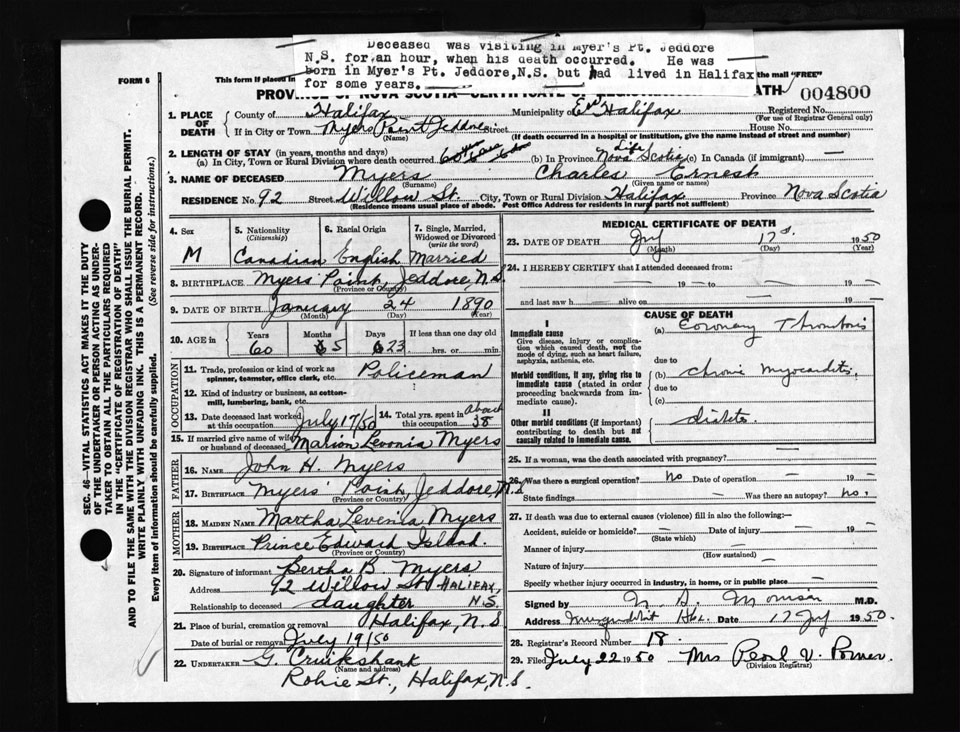 Deceased was visiting in Myer's Pt. Jeddore
N.S. for an hour, when his death occurred. He was
born in Myer's Pt. Jeddore,N.S. but had lived in Halifax
for some years.
FORM 6
This form if placed in
the mail "FREE"
PROVINCE OF NOVA SCOTIA—CERTIFICATE OF REGIS
DEATH
004800
1. PLACE OF DEATH
County of Halifax Municipality of Halifax Registered No.
(For use of Registrar General only)
If in City or Town Myers Point Jeddore Street House No.
(Name) (If death occurred in a hospital or institution, give the name instead of street and number)
2. LENGTH OF STAY (in years, months and days)
(a) In City, Town or Rural Division where death occurred (b) In Province Life Nova Scotia (c) In Canada (if immigrant) —
3. NAME OF DECEASED Myers Charles Ernest
(Surname) (Given name or names)
RESIDENCE No. 92 Street Willow St. City, Town or Rural Division Halifax Province Nova Scotia
(Residence means usual place of abode. Post Office Address for residents in rural parts not sufficient)
4. Sex M
5. Nationality (Citizenship) Canadian
6. Racial Origin English
7. Single, Married, Widowed or Divorced (write the word) Married
8. BIRTHPLACE Myers Point, Jeddore, N.S.
(Province or Country)
9. DATE OF BIRTH January 24 1890
(Month) (Day) (Year)
10. AGE in Years 60 Months 5 Days 23 If less than one day old
hrs. or min.
OCCUPATION
11. Trade, profession or kind of work as spinner, teamster, office clerk, etc. Policeman
12. Kind of industry or business, as cotton-mill, lumbering, bank, etc.
13. Date deceased last worked at this occupation July 17/50
14. Total yrs. spent in this occupation About 38
15. If married give name of wife or husband of deceased Marion Levonia Myers
FATHER
16. NAME John H. Myers
17. BIRTHPLACE Myers' Point, Jeddore, N.S.
(Province or Country)
MOTHER
18. MAIDEN NAME Martha Levenia Myers
19. BIRTHPLACE Prince Edward Island.
(Province or Country)
20. Signature of informant Bertha B. Myers
Address 92 Willow St. HALIFAX, N.S.
Relationship to deceased daughter
21. Place of burial, cremation or removal Halifax, N.S
Date of burial or removal July 19/50
22. UNDERTAKER G. Cruikshank
(Name and address)
Robie St., Halifax, N.S.
MEDICAL CERTIFICATE OF DEATH
23. DATE OF DEATH July 17 1950
(Month) (Day) (Year)
24. I HEREBY CERTIFY that I attended deceased from:
— 19 — to — 19 —
and last saw h — alive on — 19 —
CAUSE OF DEATH
I
Immediate cause
Give disease, injury or complication which caused death, not the mode of dying, such as heart failure, asphyxia, asthenia, etc.
(a) Coronary Thrombosis
due to
Morbid conditions, if any, giving rise to immediate cause (stated in order proceeding backwards from immediate cause).
(b) chronic myocarditis
due to
(c)
II
Other morbid conditions (if important) contributing to death but not causally related to immediate cause.
diabetes
25. If a woman, was the death associated with pregnancy? —
26. Was there a surgical operation? no Date of operation — 19 —
State findings — Was there an autopsy? no.
27. If death was due to external causes (violence) fill in also the following:—
Accident, suicide or homicide? — Date of injury — 19 —
(State which)
Manner of injury —
(How sustained)
Nature of injury —
Specify whether injury occurred in industry, in home, or in public place —
Signed by M.D.
Address Date 17 July 1950.
28. Registrar's Record Number 18.
29. Filed July 22 1950 Mrs Pearl V.
(Division Registrar)
SEC. 46—VITAL STATISTICS ACT MAKES IT THE DUTY
OF THE UNDERTAKER OR PERSON ACTING AS UNDER-
TAKER TO OBTAIN ALL THE PARTICULARS REQUIRED
IN THE "CERTIFICATE OF REGISTRATION OF DEATH"
AND TO FILE THE SAME WITH THE DIVISION REGISTRAR WHO SHALL ISSUE THE BURIAL PERMIT.
WRITE PLAINLY WITH UNFADING INK. THIS IS A PERMANENT RECORD.
Every item of Information should be carefully supplied. (See reverse side for instructions.)